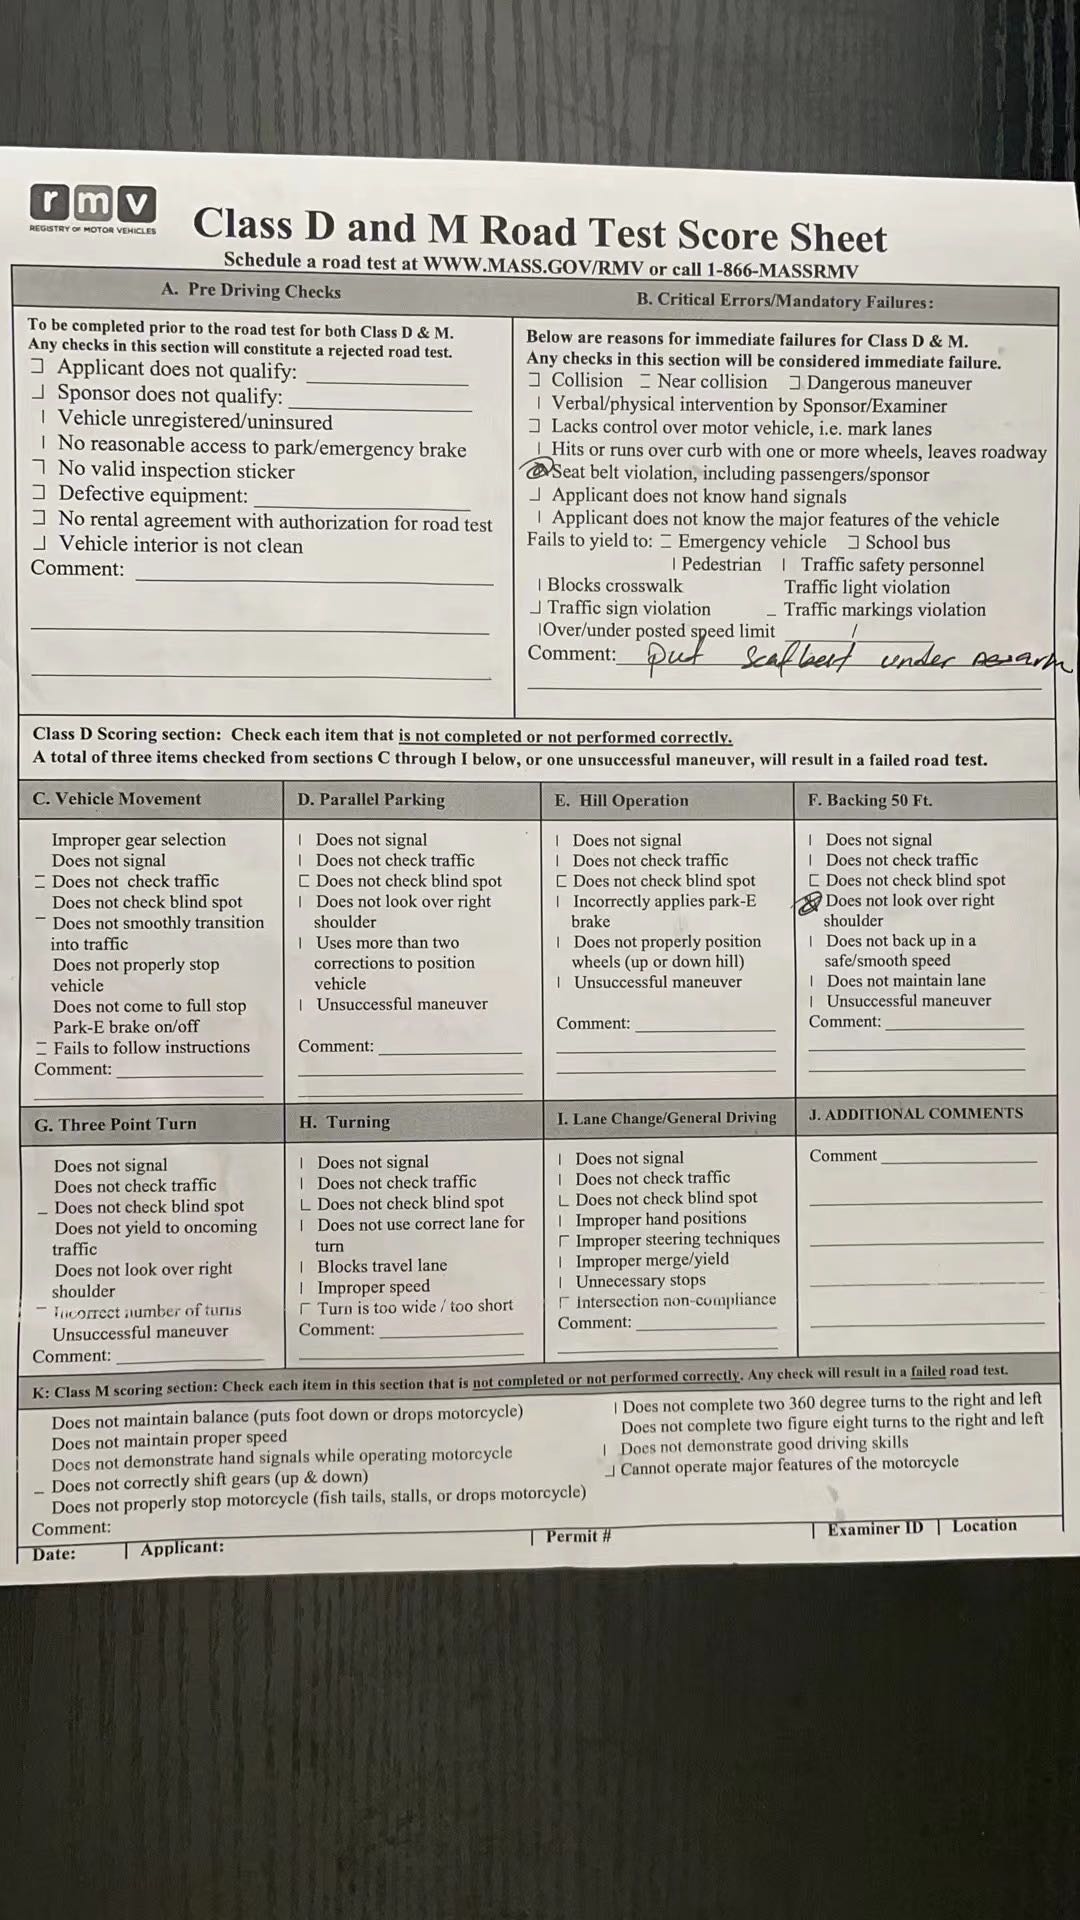 rmv
REGISTRY OF MOTOR VEHICLES
Class D and M Road Test Score Sheet
Schedule a road test at WWW.MASS.GOV/RMV or call 1-866-MASSRMV
A. Pre Driving Checks
To be completed prior to the road test for both Class D & M.
Any checks in this section will constitute a rejected road test.
Applicant does not qualify:
Sponsor does not qualify:
Vehicle unregistered/uninsured
No reasonable access to park/emergency brake
No valid inspection sticker
Defective equipment:
No rental agreement with authorization for road test
Vehicle interior is not clean
Comment:
B. Critical Errors/Mandatory Failures:
Below are reasons for immediate failures for Class D & M.
Any checks in this section will be considered immediate failure.
Collision Near collision Dangerous maneuver
Verbal/physical intervention by Sponsor/Examiner
Lacks control over motor vehicle, i.e. mark lanes
Hits or runs over curb with one or more wheels, leaves roadway
Seat belt violation, including passengers/sponsor
Applicant does not know hand signals
Applicant does not know the major features of the vehicle
Fails to yield to: Emergency vehicle School bus
Pedestrian Traffic safety personnel
Blocks crosswalk Traffic light violation
Traffic sign violation Traffic markings violation
Over/under posted speed limit /
Comment: put seatbelt under
Class D Scoring section: Check each item that is not completed or not performed correctly.
A total of three items checked from sections C through I below, or one unsuccessful maneuver, will result in a failed road test.
C. Vehicle Movement
Improper gear selection
Does not signal
Does not check traffic
Does not check blind spot
Does not smoothly transition
into traffic
Does not properly stop
vehicle
Does not come to full stop
Park-E brake on/off
Fails to follow instructions
Comment:
D. Parallel Parking
Does not signal
Does not check traffic
Does not check blind spot
Does not look over right
shoulder
Uses more than two
corrections to position
vehicle
Unsuccessful maneuver
Comment:
E. Hill Operation
Does not signal
Does not check traffic
Does not check blind spot
Incorrectly applies park-E
brake
Does not properly position
wheels (up or down hill)
Unsuccessful maneuver
Comment:
F. Backing 50 Ft.
Does not signal
Does not check traffic
Does not check blind spot
Does not look over right
shoulder
Does not back up in a
safe/smooth speed
Does not maintain lane
Unsuccessful maneuver
Comment:
G. Three Point Turn
Does not signal
Does not check traffic
Does not check blind spot
Does not yield to oncoming
traffic
Does not look over right
shoulder
Incorrect number of turns
Unsuccessful maneuver
Comment:
H. Turning
Does not signal
Does not check traffic
Does not check blind spot
Does not use correct lane for
turn
Blocks travel lane
Improper speed
Turn is too wide / too short
Comment:
I. Lane Change/General Driving
Does not signal
Does not check traffic
Does not check blind spot
Improper hand positions
Improper steering techniques
Improper merge/yield
Unnecessary stops
Intersection non-compliance
Comment:
J. ADDITIONAL COMMENTS
Comment
K: Class M scoring section: Check each item in this section that is not completed or not performed correctly. Any check will result in a failed road test.
Does not maintain balance (puts foot down or drops motorcycle)
Does not maintain proper speed
Does not demonstrate hand signals while operating motorcycle
Does not correctly shift gears (up & down)
Does not properly stop motorcycle (fish tails, stalls, or drops motorcycle)
Does not complete two 360 degree turns to the right and left
Does not complete two figure eight turns to the right and left
Does not demonstrate good driving skills
Cannot operate major features of the motorcycle
Comment:
Date: Applicant: Permit # Examiner ID Location